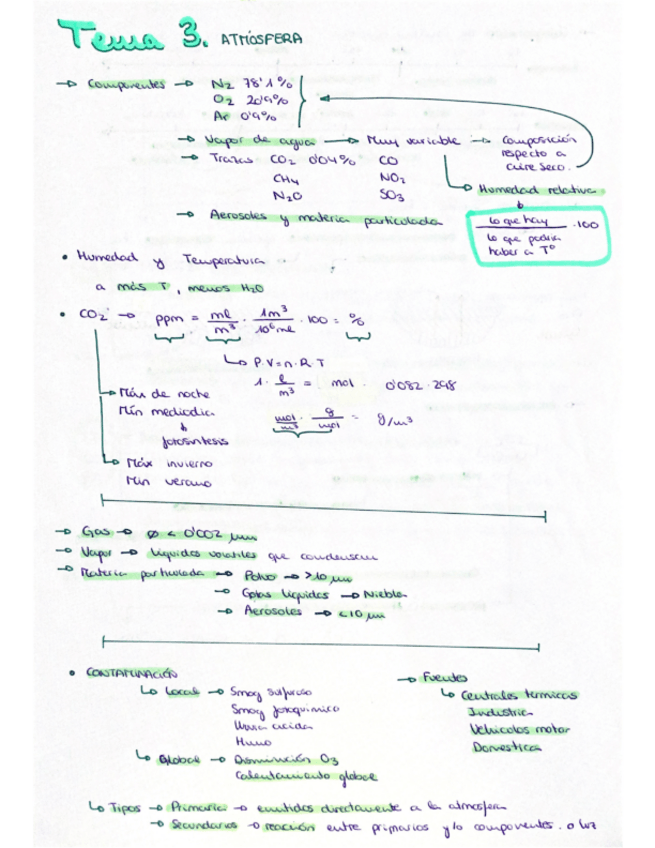 Tema 3. ATMÓSFERA
→ Componentes → N2 78'1%
O2 20'9%
Ar 0'9%
→ Vapor de agua → Muy variable → Composición respecto a aire seco.
→ Trazas CO2 0'04% CO
CH4 NO2
N2O SO3
→ Humedad relativa
lo que hay / lo que podría haber a Tº · 100
→ Aerosoles y materia particulada
• Humedad y Temperatura
a más T, menos H2O
• CO2 → ppm = ml/m³ · 1m³/10⁶ml · 100 = %
↳ P.V = n.R.T
1 · l/m³ = mol · 0'082 · 298
mol/m³ · g/mol = g/m³
→ Máx de noche
Mín mediodia
↓
fotosíntesis
→ Máx invierno
Min verano
→ Gas → ø < 0'002 µm
→ Vapor → líquidos volátiles que condensan
→ Materia particulada → Polvo → >10 µm
→ Gotas líquidas → Niebla
→ Aerosoles → <10 µm
• CONTAMINACIÓN
↳ Local → Smog sulfuroso
Smog fotoquímico
lluvia acida
Humo
↳ Global → Disminución O3
Calentamiento global
→ Fuentes
↳ Centrales termicas
Industria
Vehiculos motor
Domestica
↳ Tipos → Primaria → emitidos directamente a la atmosfera
→ Secundarios → reacción entre primarios y/o componentes. o luz